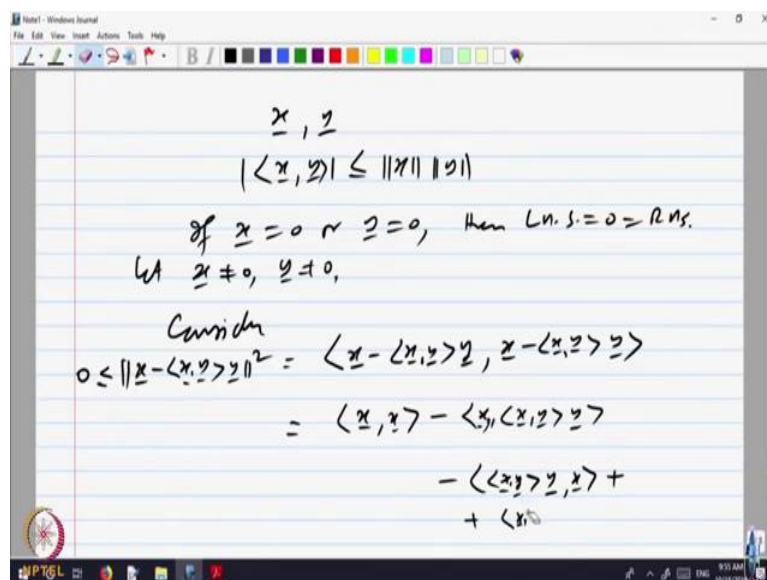 Note1 - Windows Journal
File Edit View Insert Actions Tools Help
B I
x , y
|<x, y>| ≤ ||x|| ||y||
If x = 0 or y = 0, then L.H.S. = 0 = R.H.S.
Let x ≠ 0, y ≠ 0,
Consider
0 ≤ ||x - <x,y>y||² = <x - <x,y>y, x - <x,y>y>
= <x, x> - <x, <x,y>y>
- <<x,y>y, x> +
+ <x,
NPTEL
ENG 9:55 AM